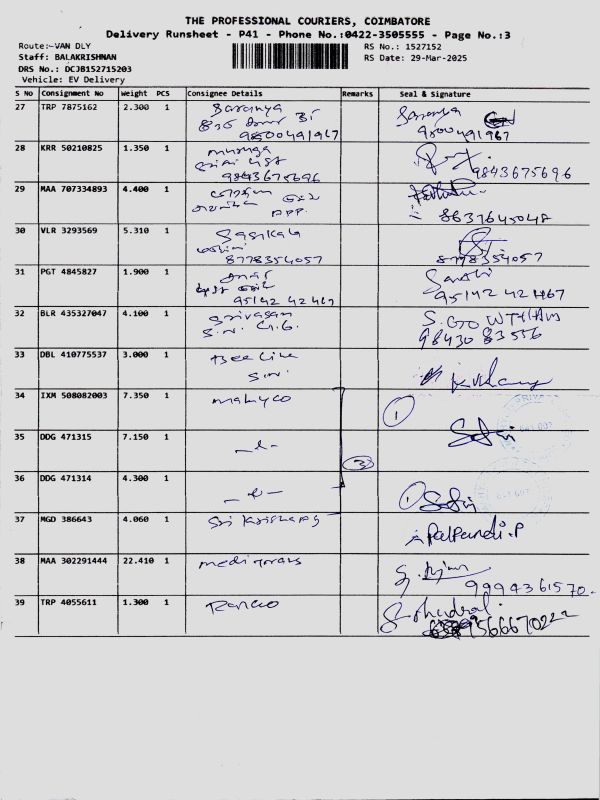 THE PROFESSIONAL COURIERS, COIMBATORE
Delivery Runsheet - P41 - Phone No.:0422-3505555 - Page No.:3
Route:-VAN DLY
RS No.: 1527152
Staff: BALAKRISHNAN
RS Date: 29-Mar-2025
DRS No.: DCJB152715203
Vehicle: EV Delivery
S No Consignment No Weight PCS Consignee Details Remarks Seal & Signature
27 TRP 7875162 2.300 1 Saranya
9500491967
28 KRR 50210825 1.350 1 muruga
9843675696 9843675696
29 MAA 707334893 4.400 1
APP. 8637645048
30 VLR 3293569 5.310 1 Sasikala
8778354057 8778354057
31 PGT 4845827 1.900 1
95142 42467 95142 42467
32 BLR 435327047 4.100 1 Srivasan S. GOWTHAM
S.N. G.G. 98430 83556
33 DBL 410775537 3.000 1 Bee Line
S.N.
34 IXM 508082003 7.350 1 Mahyco 1
35 DDG 471315 7.150 1 3
36 DDG 471314 4.300 1 1
37 MGD 386643 4.060 1 Sri Krishna Palpandi.P
38 MAA 302291444 22.410 1
9994361570.
39 TRP 4055611 1.300 1
9566670222